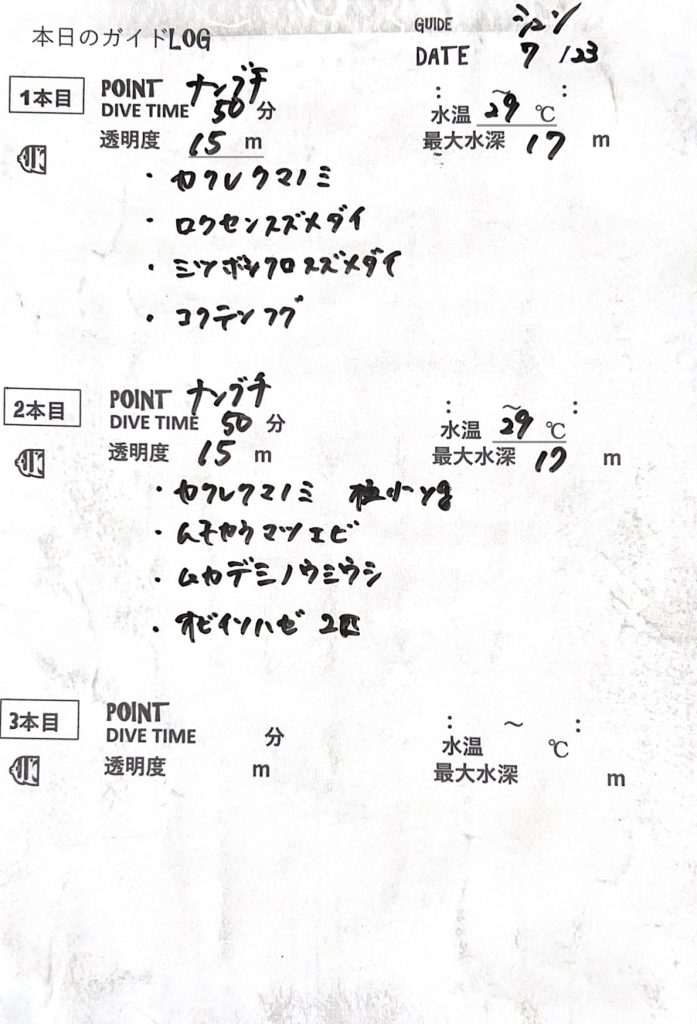 本日のガイドLOG
GUIDE シュン
DATE 7/23
1本目 POINT ナングチ : ～ :
DIVE TIME 50 分 水温 29 ℃
透明度 15 m 最大水深 17 m
・カクレクマノミ
・ロクセンスズメダイ
・ミツボシクロスズメダイ
・コクテンフグ
2本目 POINT ナングチ : ～ :
DIVE TIME 50 分 水温 29 ℃
透明度 15 m 最大水深 17 m
・カクレクマノミ 極小yg
・ムチカラマツエビ
・ムカデミノウミウシ
・オビイソハゼ 2匹
3本目 POINT : ～ :
DIVE TIME 分 水温 ℃
透明度 m 最大水深 m